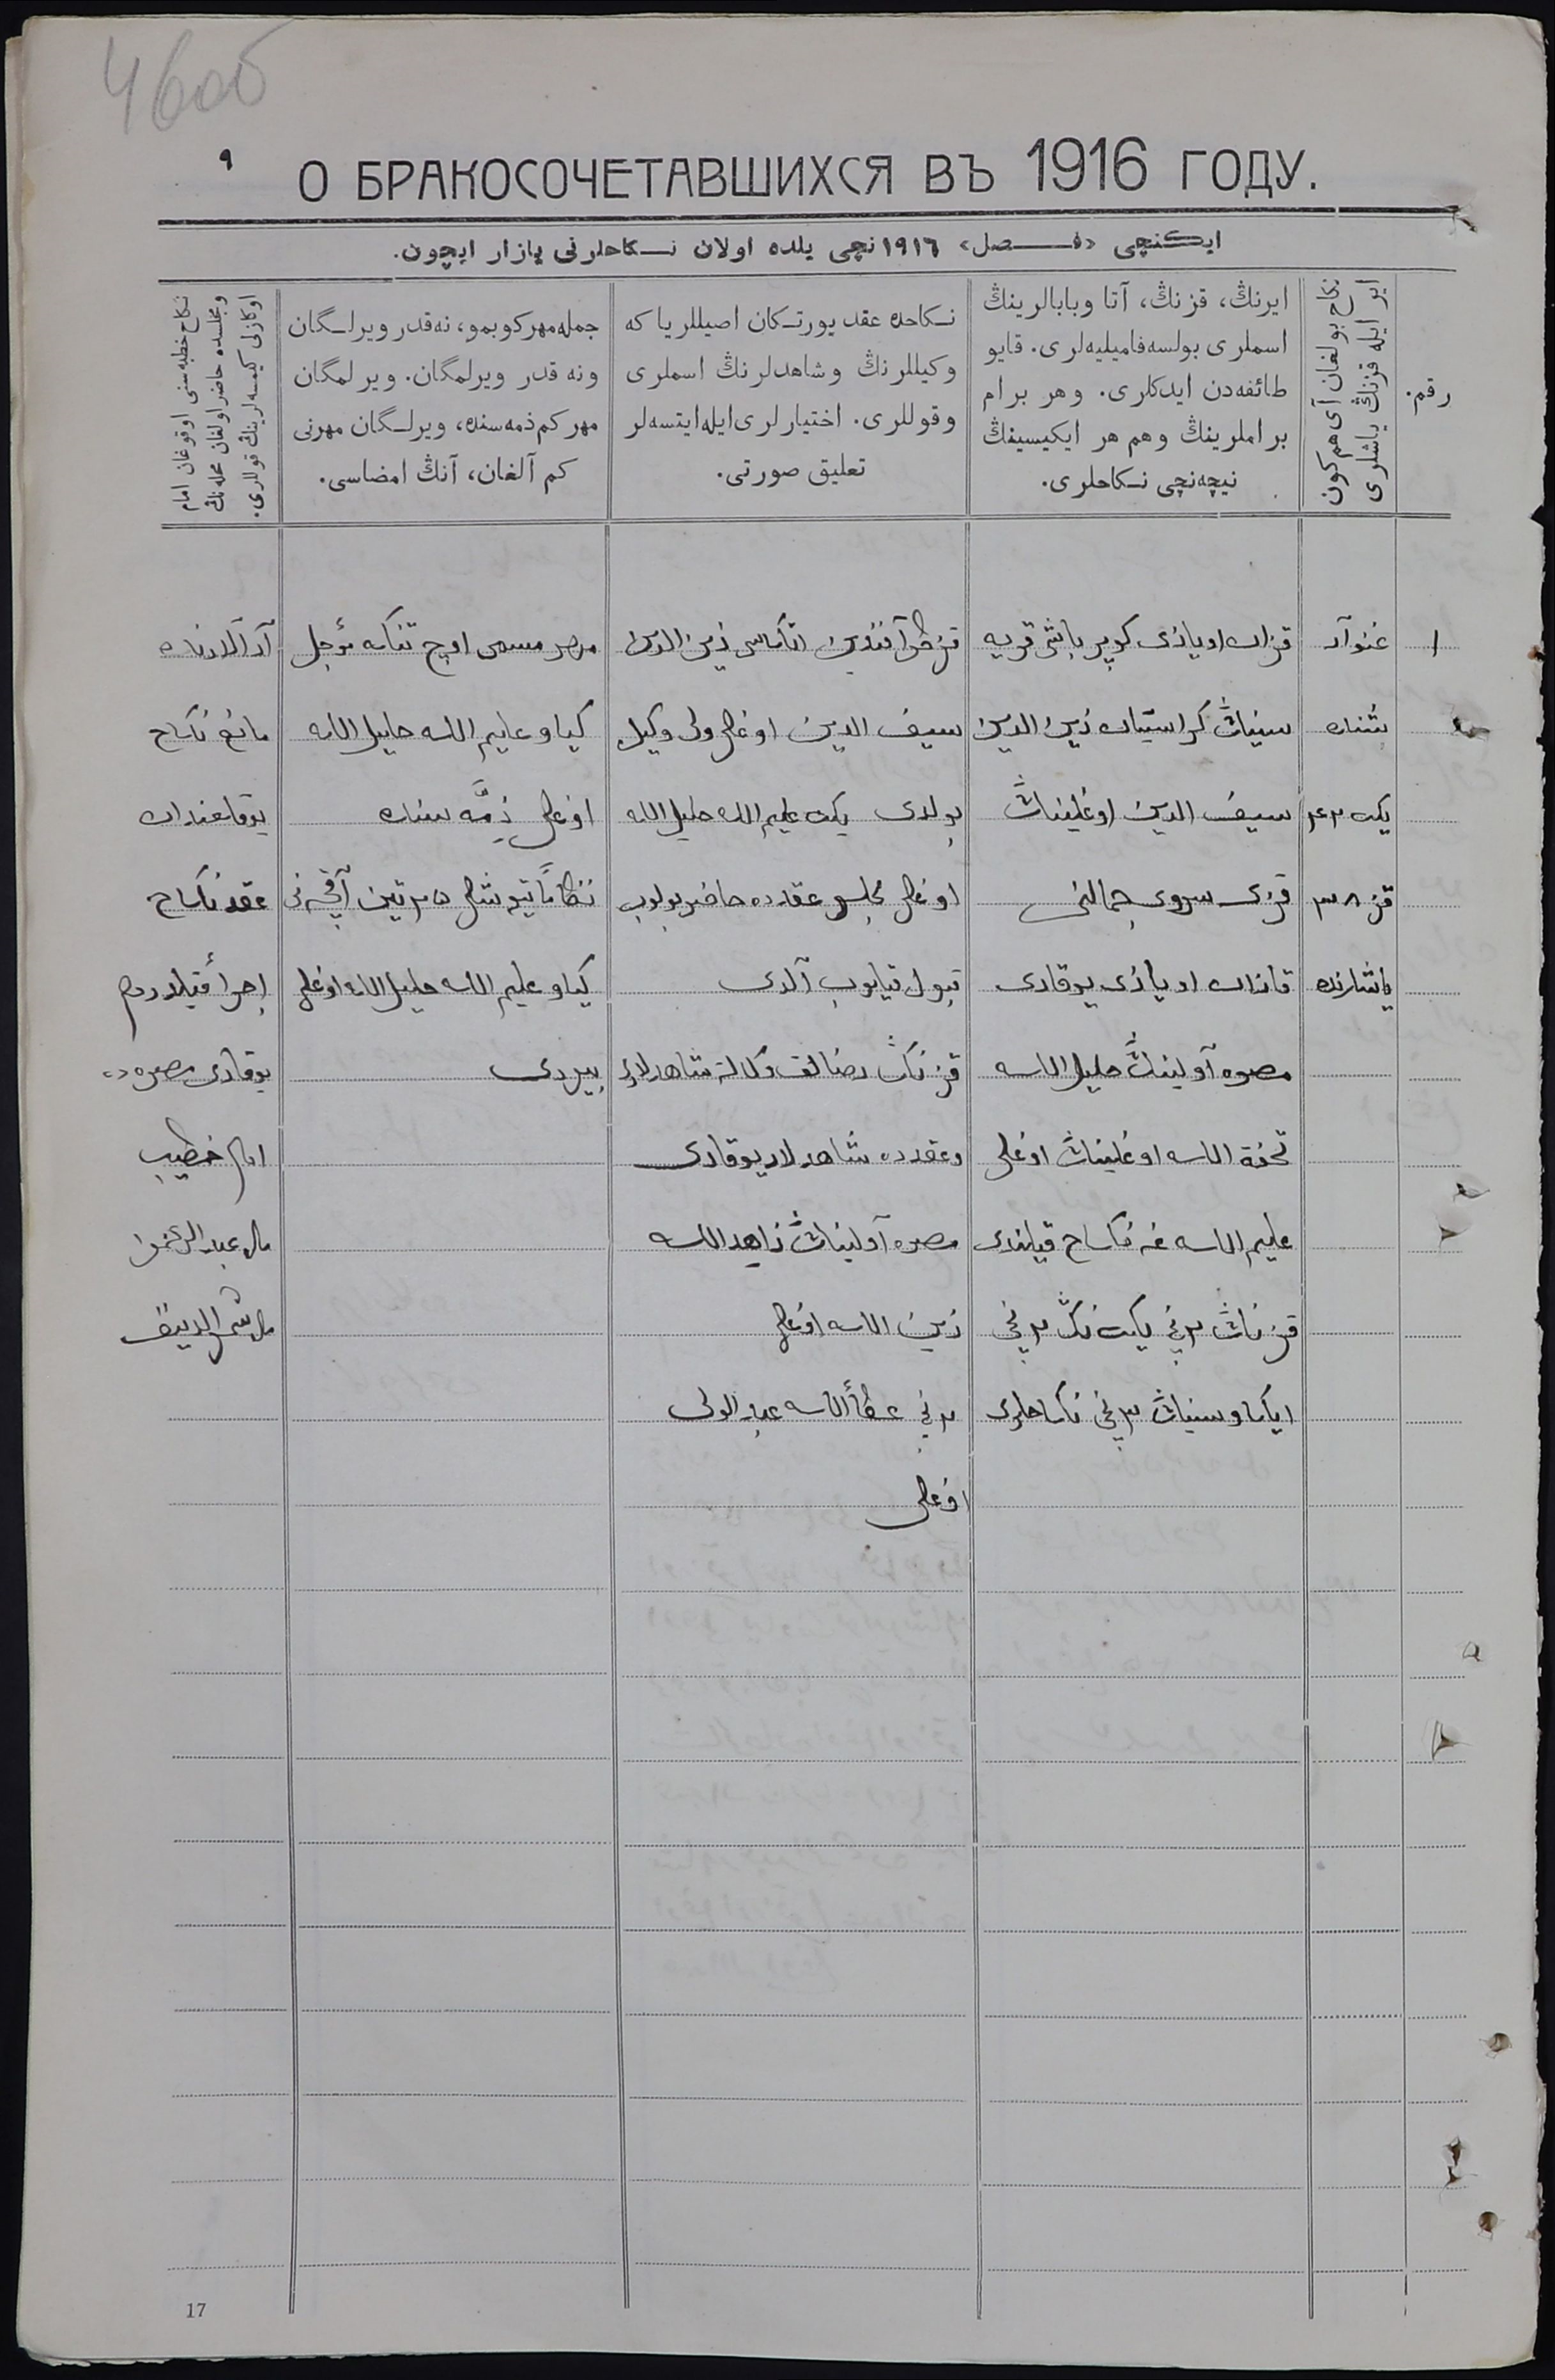 460об
٩
О БРАКОСОЧЕТАВШИХСЯ ВЪ 1916 ГОДУ.
ایکنچی «فصل» ١٩١٦نچی یلده اولان نکاحلرنی یازار ایچون.
رقم.
نکاح بولغان آی هم کون
ایر ایله قزنڭ یاشلری
ایرنڭ، قزنڭ، آتا وبابالرینڭ
اسملری بولسه فامیلیه‌لری. قایو
طائفه‌دن ایدکلری. وهر برام
براملرینڭ وهم هر ایکیسینڭ
نیچه‌نچی نکاحلری.
نکاحده عقد یورتکان اصیللر یا که
وکیللرنڭ وشاهدلرنڭ اسملری
وقوللری. اختیارلری ایله ایتسه‌لر
تعلیق صورتی.
جمله مهر کوبمو، نه‌قدر ویرلگان
ونه قدر ویرلمگان. ویرلمگان
مهر کم ذمه سنده، ویرلگان مهرنی
کم آلغان، آنڭ امضاسی.
نکاح خطبه‌سنی اوقوغان امام
ومجلسده حاضر اولغان محله‌نڭ
اوکازلی کیمسه‌لرینڭ قوللاری.
١
غنوار
یکت ٢٣
قز ١٨
یاشارنده
قزان اویازی کویر باشی قریه
سینڭ کراستیان زین الدین
سیف الدین اوغلینڭ
قزی سروی جمالنی
قازان اویازی یوقاری
مصره آولینڭ خلیل الله
تحفة الله اوغلینڭ اوغلی
علیم الله غه نکاح قیلندی
قزنڭ ٢ نچی یکت نڭ ٢ نچی
ایکاوسینڭ ٢ نچی نکاحلری
اتاسی زین الدین
سیف الدین اوغلی ولی وکیل
بولدی یکت علیم الله خلیل الله
اوغلی مجلس عقدده حاضر بولوب
قبول قیلوب آلدی
قزنڭ رضالق وکالة شاهدلاری
وعقدده شاهدلار یوقاری
مصره آولینڭ زاهد الله
زین الله اوغلی
٢ نچی عطاء الله عبد الولی
اوغلی
مهر مسمی اوچ تنکه مؤجل
کیاو علیم الله خلیل الله
اوغلی ذمّه سنده
کیاو علیم الله خلیل الله اوغلی
بیردی
آرالارنده
مانع نکاح
یوقلغندان
عقد نکاح
اجرا قیلدردم
یوقاری مصره ده
امام خطیب
17